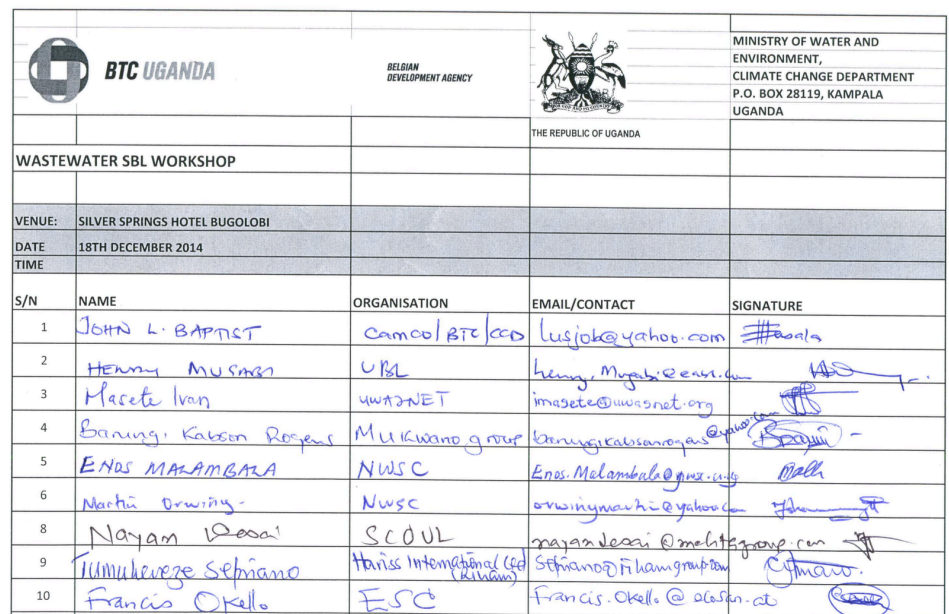 BTC UGANDA
BELGIAN
DEVELOPMENT AGENCY
THE REPUBLIC OF UGANDA
MINISTRY OF WATER AND
ENVIRONMENT,
CLIMATE CHANGE DEPARTMENT
P.O. BOX 28119, KAMPALA
UGANDA
WASTEWATER SBL WORKSHOP
VENUE: SILVER SPRINGS HOTEL BUGOLOBI
DATE 18TH DECEMBER 2014
TIME
S/N NAME ORGANISATION EMAIL/CONTACT SIGNATURE
1 JOHN L. BAPTIST Camco/BTC/CCD lusjob@yahoo.com
2 HENRY UBL
3 Masete Ivan UWASNET imasete@uwasnet.org
4 Barungi Kabson Rogens Mukwano group barungikabsonrogens@yahoo.com
5 ENOS MALAMBALA NWSC
6 Martin Orwiny- NWSC
8 Nayan Desai SCOUL nayandesai@mehtagroup.com
9 Tumuheveze Sepriano Hariss International Ltd
10 Francis Okello ESC francis.okello@ecosan.at